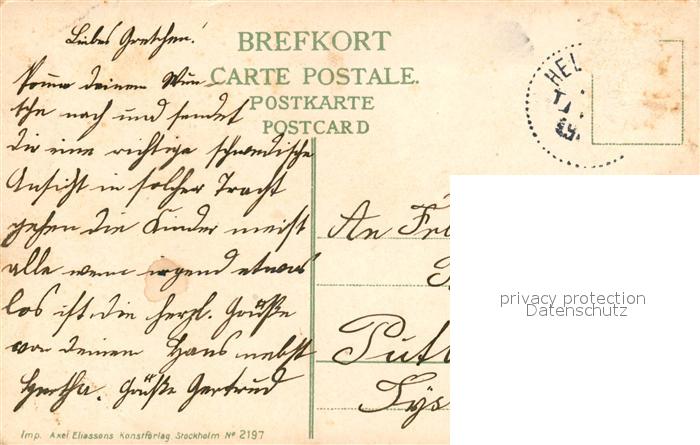 Liebes Gretchen!
BREFKORT
CARTE POSTALE.
POSTKARTE
POSTCARD
Komme deinem Wun
sche nach und sendet
dir eine richtige schwedische
Ansicht in solcher Tracht
gehen die Kinder meist
alle wenn irgend etwas
los ist. die herzl. Grüße
von deinem Hans nebst
Hertha. Grüße Gertrud
HEL
An Frl
Putt
Sys
privacy protection
Datenschutz
Imp. Axel Eliassons Konstförlag Stockholm Nº 2197